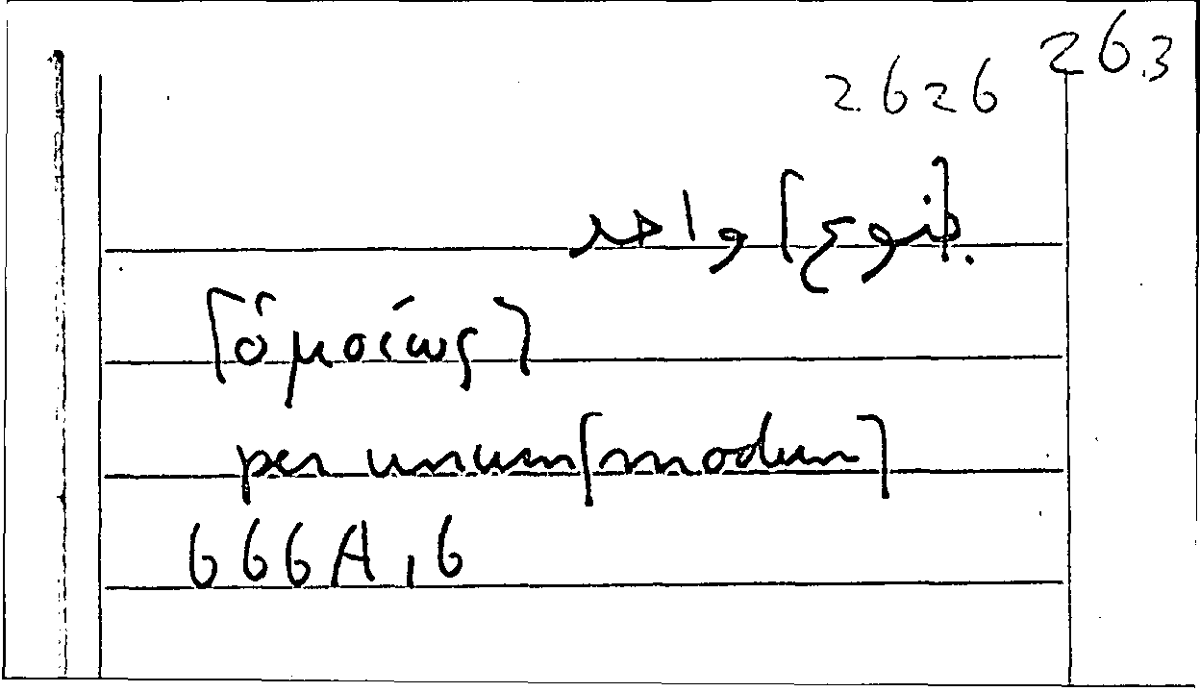 263
2626
ب]نوع[ واحد
[ὁμοίως]
per unum [modum]
666A,6